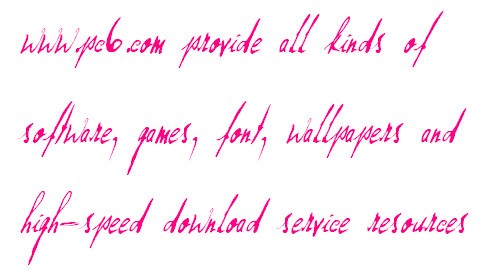 www.pc6.com provide all kinds of
software, games, font, wallpapers and
high-speed download service resources